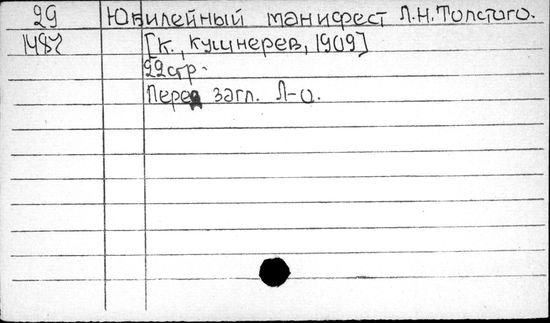 29 Юбилейный манифест Л.Н.Толстого.
1487 [К., Кушнерев, 1909]
22стр.
Перед загл. Л-о.